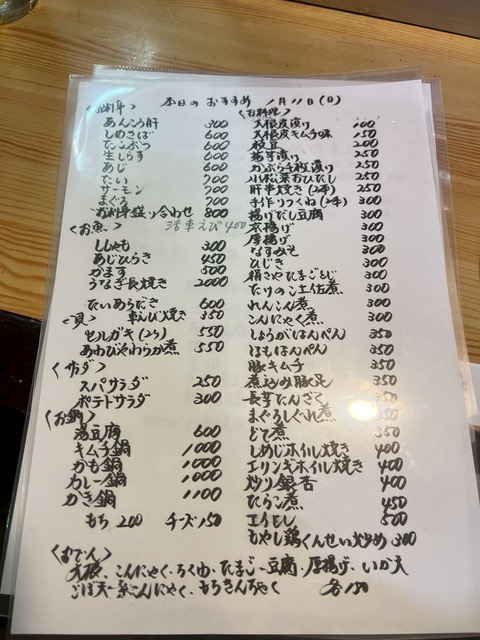 本日のおすすめ 1月11日(日)
<お刺身>
あんこう肝 300
しめさば 600
たこぶつ 600
生しらす 600
あじ 600
たい 700
サーモン 700
まぐろ 700
お刺身盛り合わせ 800
活車えび 400
<お魚>
ししゃも 300
あじひらき 450
かます 500
うなぎ長焼き 2000
たいあらだき 600
車えび焼き 350
<貝>
カキ(2ヶ) 550
あわびやわらか煮 550
<サラダ>
スパサラダ 250
ポテトサラダ 300
<お鍋>
湯豆腐 600
キムチ鍋 1000
かも鍋 1000
カレー鍋 1000
かき鍋 1100
もち 200 チーズ 150
<お料理>
大根皮漬け 100
大根皮キムチ味 150
枝豆 200
漬け 250
かぶら千枚漬け 250
小松菜おひたし 250
肝串焼き(2本) 250
手作りつくね(2本) 300
揚げだし豆腐 300
揚げ 300
厚揚げ 300
なすみそ 300
ひじき 300
絹さやたまごとじ 300
たけのこ土佐煮 300
れんこん煮 300
こんにゃく煮 300
しょうがはんぺん 350
はもはんぺん 350
豚キムチ 350
煮込み豚足 350
長芋たんざく 350
まぐろしぐれ煮 350
どて煮 350
しめじホイル焼き 400
エリンギホイル焼き 400
炒り銀杏 400
たらこ煮 450
エイヒレ 500
もやし鶏くんせい炒め 300
<おでん>
大根、こんにゃく・ちくわ・たまご・豆腐・厚揚げ・いか天
ごぼ天・糸こんにゃく、もちきんちゃく 各150